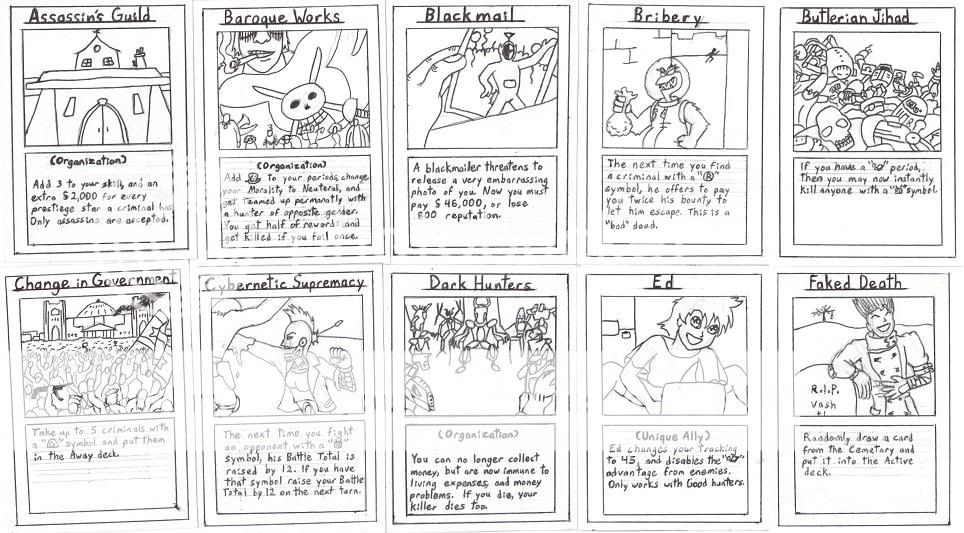 Assassin's Guild
(Organization)
Add 3 to your skill, and an
extra $2,000 for every
prestiege star a criminal has
Only assassins are accepted.
Baroque Works
(Organization)
Add to your periods, change
your Morality to Neuteral, and
get teamed up permantly with
a hunter of opposite gender.
You get half of rewards and
get killed if you fail once.
Blackmail
A blackmailer threatens to
release a very embarrassing
photo of you. Now you must
pay $ 46,000, or lose
800 reputation.
Bribery
The next time you find
a criminal with a " "
symbol, he offers to pay
you twice his bounty to
let him escape. This is a
"bad" deed.
Butlerian Jihad
If you have a " " period,
Then you may now instantly
Kill anyone with a " " symbol.
Change in Government
Take up to 5 criminals with
a " " symbol and put them
in the Away deck.
Cybernetic Supremacy
The next time you fight
an opponent with a " "
symbol, his Battle Total is
raised by 12. If you have
that symbol raise your Battle
Total by 12 on the next turn.
Dark Hunters
(Organization)
You can no longer collect
money, but are now immune to
living expenses, and money
problems. If you die, your
killer dies too.
Ed
(Unique Ally)
Ed changes your tracking
to 45, and disables the " "
advantage from enemies.
Only works with Good hunters.
Faked Death
R.I.P.
Vash
Randomly draw a card
from the Cemetary and
put it into the Active
deck.